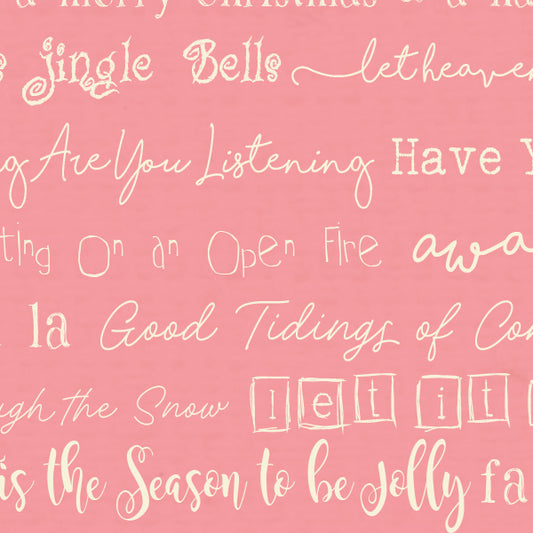 a merry christmas
jingle Bells let heaven
Are You Listening Have Y
ting On an Open Fire awa
la Good Tidings of Com
ugh the Snow let it
is the Season to be Jolly fa